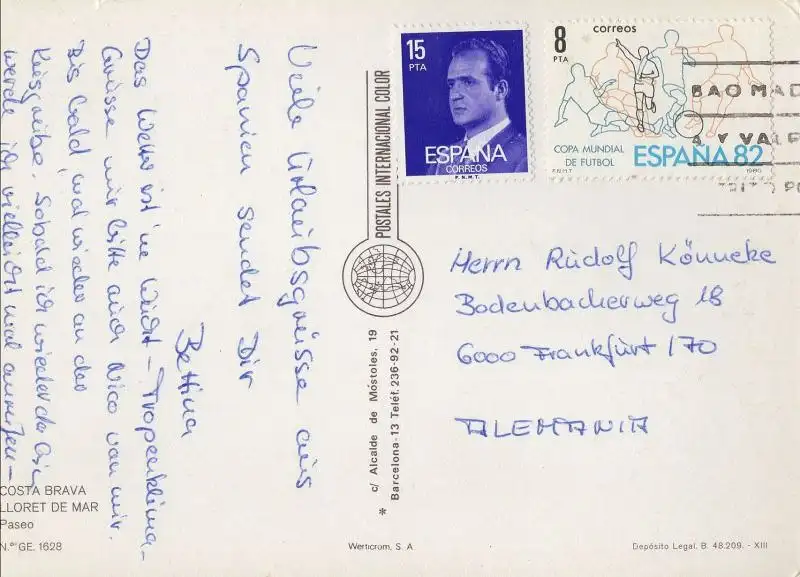 Viele Urlaubsgrüsse aus
Spanien sendet Dir
Bettina
Das Wetter ist 'ne Wucht - Tropenklima -
Grüsse mir bitte auch Nico von mir.
Bis bald, mal wieder an der
Sobald ich wieder da bin
werde ich vielleicht mal anrufen -
COSTA BRAVA
LLORET DE MAR
Paseo
N.º GE. 1628
POSTALES INTERNACIONAL COLOR
c/ Alcalde de Móstoles, 19
Barcelona-13 Teléf. 236-92-21
*
Werticrom, S. A
15
PTA
ESPAÑA
CORREOS
F.N.M.T.
8
PTA
correos
COPA MUNDIAL
DE FUTBOL
ESPAÑA 82
F.N.M.T
1980
Herrn Rudolf Könneke
Bodenbacherweg 18
6000 Frankfurt / 70
ALEMANIA
Depósito Legal. B. 48.209. - XIII